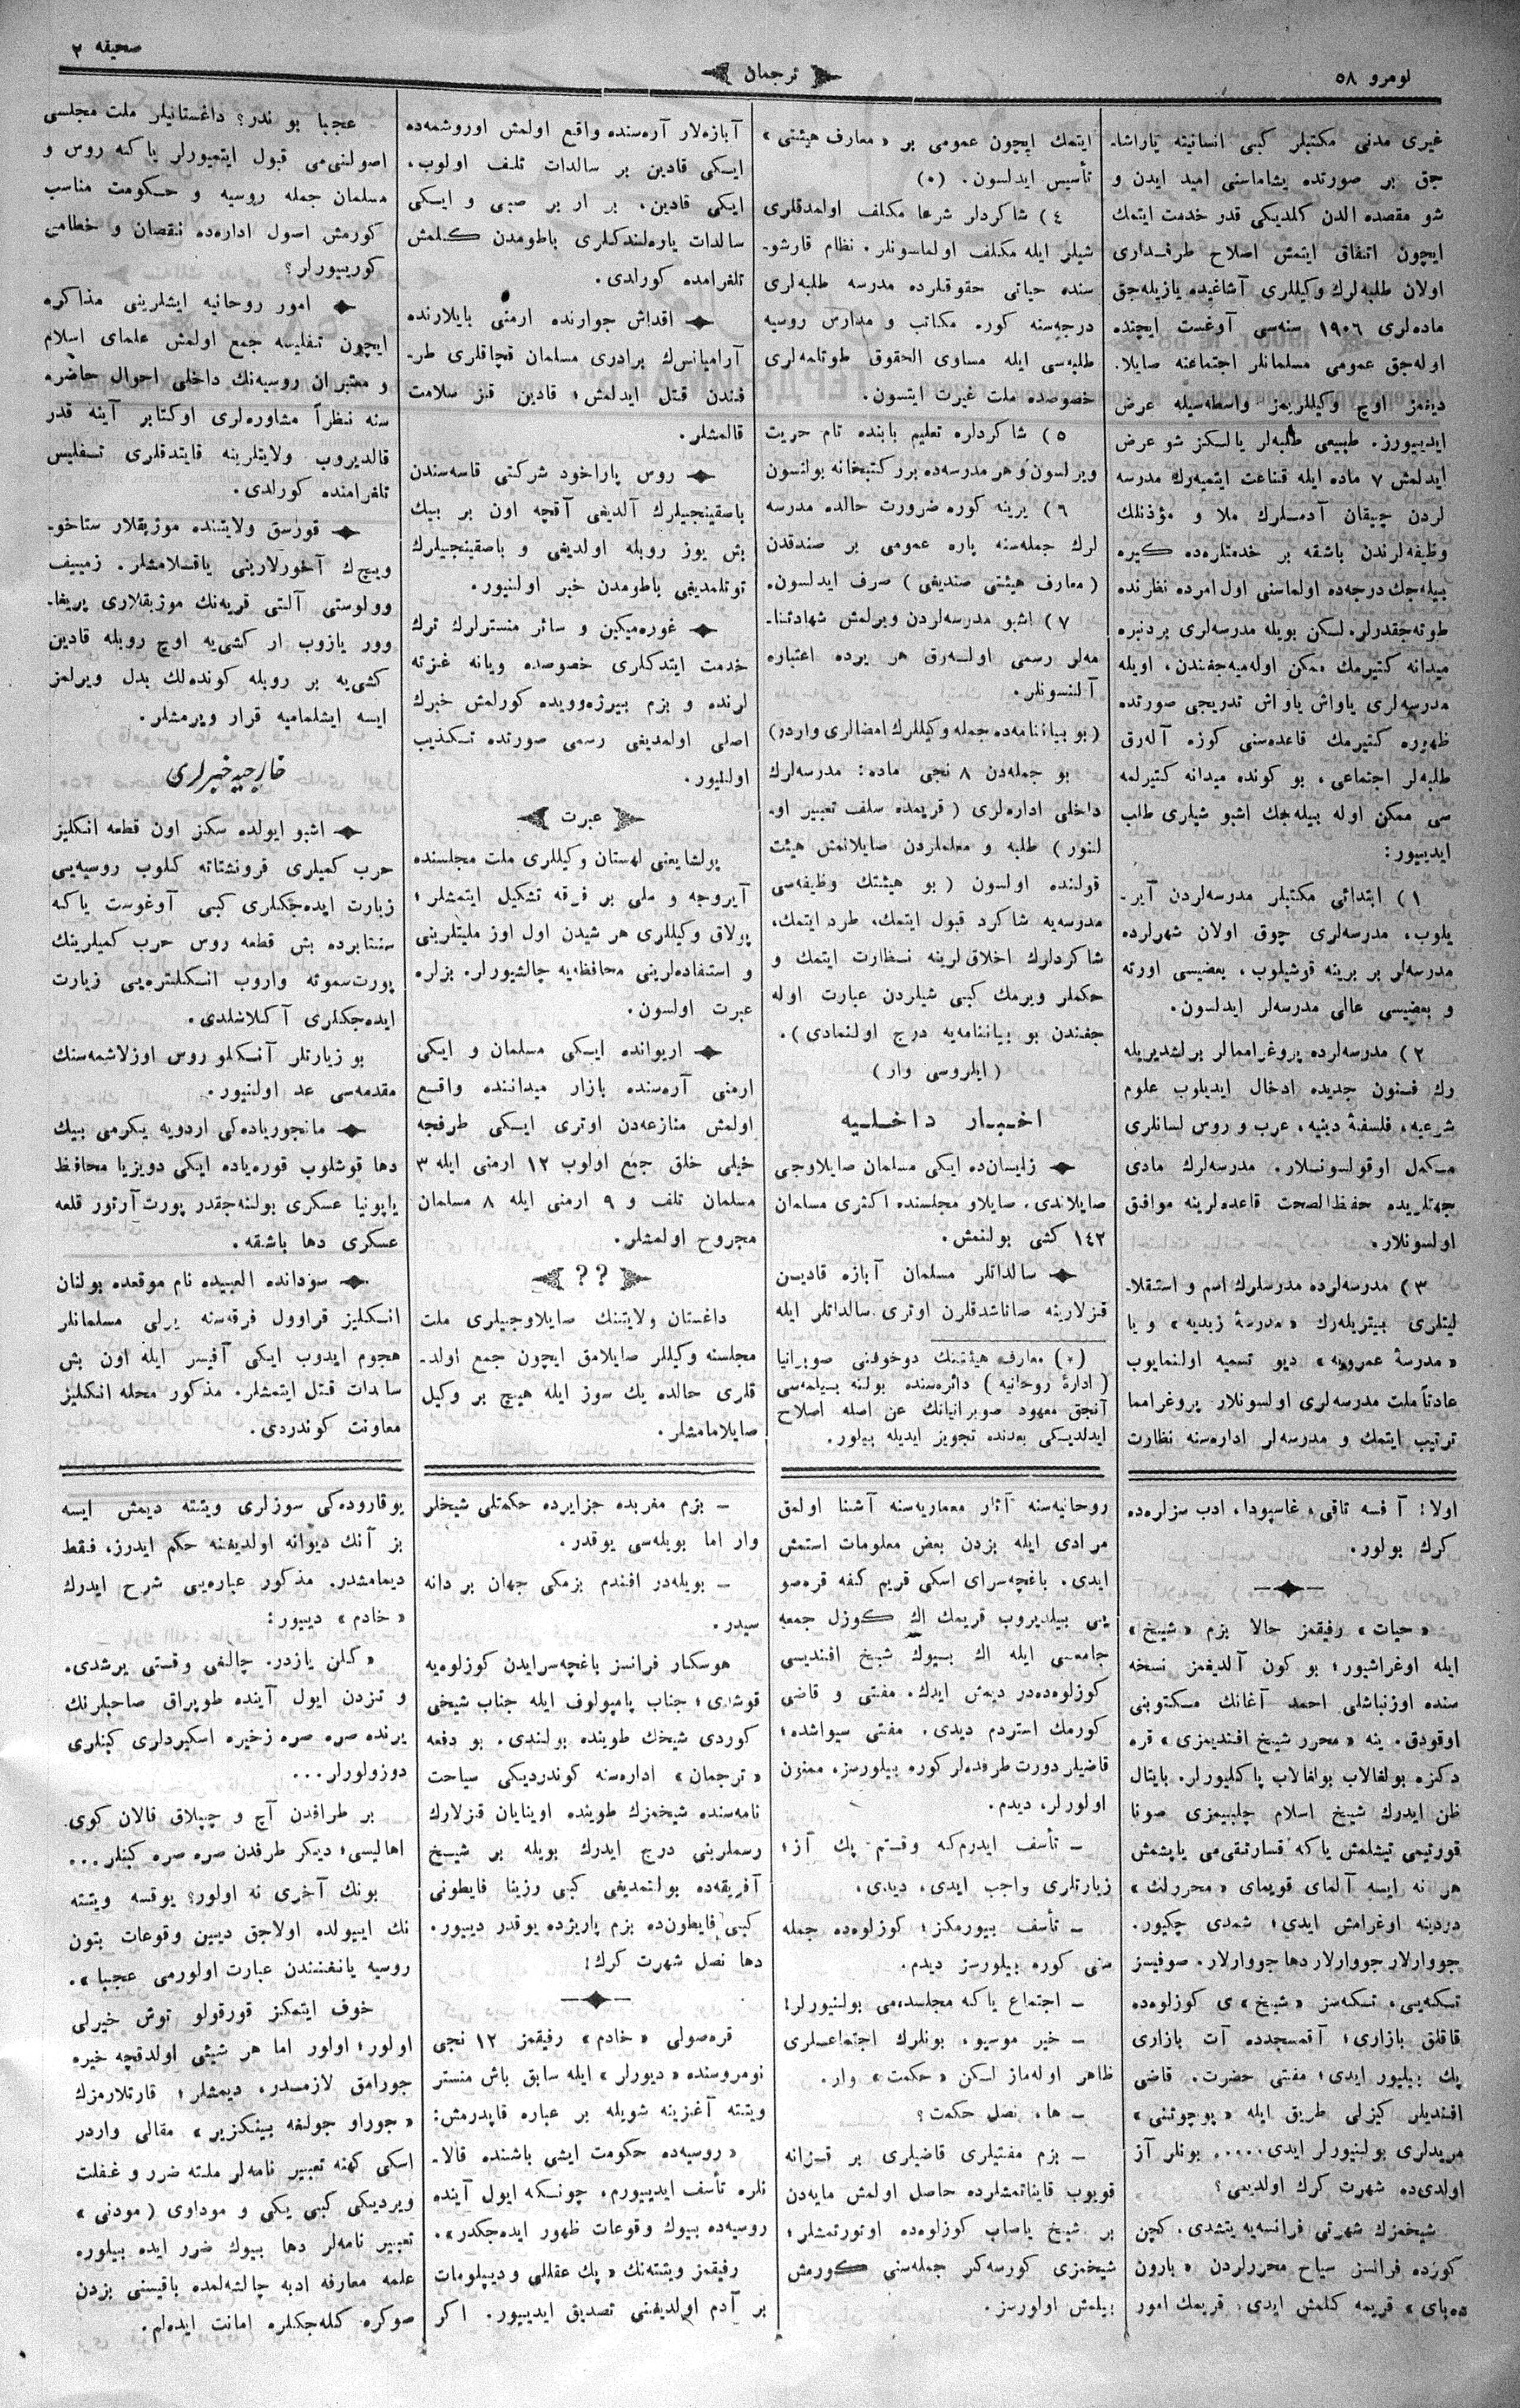 صحيفه ٢
ترجمان
نومرو ٥٨
غيرى مدنى مكتبلر كبى انسانيته ياراشا-
جق بر صورتده يشاماسنى اميد ايدن و
شو مقصده الدن كلديكى قدر خدمت ايتمك
ايچون اتفاق ايتمش اصلاح طرفدارى
اولان طلبه‌لرك وكيللرى آشاغيده يازيله‌جق
ماده‌لرى ١٩٠٦ سنه‌سى آوغست ايچنده
اوله‌جق عمومى مسلمانلر اجتماعنه صايلا-
ديغمز اوچ وكيللريمز واسطه‌سيله عرض
ايدييورز. طبيعى طلبه‌لر يالكز شو عرض
ايدلمش ٧ ماده ايله قناعت ايتميه‌رك مدرسه
لردن چيقان آدملرك ملا و مؤذنلك
وظيفه‌لرندن باشقه بر خدمتلرده كيره
بيله‌جك درجه‌ده اولماسنى اول امرده نظرنده
طوته‌جقدرلر. لكن بويله مدرسه‌لرى بردنبره
ميدانه كتيرمك ممكن اوله‌ميه‌جغندن، اويله
مدرسه‌لرى ياواش ياواش تدريجى صورتده
ظهوره كتيرمك قاعده‌سنى كوزه آله‌رق
طلبه‌لر اجتماعى، بو كونده ميدانه كتيرلمه
سى ممكن اوله بيله‌جك اشبو شيلرى طلب
ايدييور:
١) ابتدائى مكتبلر مدرسه‌لردن آير-
يلوب، مدرسه‌لرى چوق اولان شهرلرده
مدرسه‌لر بر برينه قوشيلوب، بعضيسى اورته
و بعضيسى عالى مدرسه‌لر ايدلسون.
٢) مدرسه‌لرده پروغراممالر برلشديريله
رك فنون جديده ادخال ايديلوب علوم
شرعيه، فلسفۀ دينيه، عرب و روس لسانلرى
مكمل اوقولسونلار. مدرسه‌لرك مادى
جهتلريده حفظ‌الصحت قاعده‌لرينه موافق
اولسونلار.
٣) مدرسه‌لرده مدرسلرك اسم و استقلا-
ليتلرى بيتريله‌رك «مدرسۀ زيديه» و يا
«مدرسۀ عمرويه» ديو تسميه اولنمايوب
عادتاً ملت مدرسه‌لرى اولسونلار پروغرامما
ترتيب ايتمك و مدرسه‌لر اداره‌سنه نظارت
ايتمك ايچون عمومى بر «معارف هيئتى»
تأسيس ايدلسون. (٠)
٤) شاكردلر شرعا مكلف اولمدقلرى
شيلر ايله مكلف اولماسونلر. نظام قارشو-
سنده حياتى حقوقلرده مدرسه طلبه‌لرى
درجه‌سنه كوره مكاتب و مدارس روسيه
طلبه‌سى ايله مساوى الحقوق طوتلمه‌لرى
خصوصده ملت غيرت ايتسون.
٥) شاكردلره تعليم بابنده تام حريت
ويرلسون و هر مدرسه‌ده برر كتبخانه بولنسون
٦) يرينه كوره ضرورت حالده مدرسه
لرك جمله‌سنه پاره عمومى بر صندقدن
(معارف هيئتى صنديغى) صرف ايدلسون.
٧) اشبو مدرسه‌لردن ويرلمش شهادتنا-
مه‌لر رسمى اوله‌رق هر يرده اعتباره
آلنسونلر.
(بو بيانّامه‌ده جمله وكيللرك امضالرى واردر)
بو جمله‌دن ٨ نجى ماده: مدرسه‌لرك
داخلى اداره‌لرى (قريمده سلف تعبير او-
لنور) طلبه و معلملردن صايلانمش هيئت
قولنده اولسون (بو هيئتك وظيفه‌سى
مدرسه‌يه شاكرد قبول ايتمك، طرد ايتمك،
شاكردلرك اخلاق لرينه نظارت ايتمك و
حكملر ويرمك كبى شيلردن عبارت اوله
جغندن بو بياننامه‌يه درج اولنمادى).
(ايلروسى وار)
اخبار داخليه
زايسان‌ده ايكى مسلمان صايلاوجى
صايلاندى. صايلاو مجلسنده اكثرى مسلمان
١٤٢ كشى بولنمش.
سالداتلر مسلمان آبازه قادين
قزلارينه صاتاشدقلرن اوترى سالداتلر ايله
(٠) معارف هيئتنك دوخوفنى صوبرانيا
(ادارۀ روحانيه) دائره‌سنده بولنه بيلمه‌سى
آنجق معهود صوبرانيانك عن اصله اصلاح
ايدلديكى بعدنده تجويز ايديله بيلور.
آبازه‌لار آره‌سنده واقع اولمش اوروشمه‌ده
ايكى قادين بر سالدات تلف اولوب،
ايكى قادين، بر ار بر صبى و ايكى
سالدات ياره‌لندكلرى باطومدن كلمش
تلغرامده كورلدى.
اقداش جوارنده ارمنى بايلارنده
آراميانس‌ك برادرى مسلمان قچاقلرى طر-
فندن قتل ايدلمش؛ قادين قز سلامت
قالمشلر.
روس پاراخود شركتى قاسه‌سندن
باصقينجيلرك آلديغى آقچه اون بر بيك
بش يوز روبله اولديغى و باصقينجيلرك
توتلمديغى باطومدن خبر اولنيور.
غوره‌ميكين و سائر منسترلرك ترك
خدمت ايتدكلرى خصوصده ويانه غزته
لرنده و بزم بيرژه‌وويده كورلمش خبرك
اصلى اولمديغى رسمى صورتده تكذيب
اولنيور.
عبرت
پولشا يعنى لهستان وكيللرى ملت مجلسنده
آيروجه و ملى بر فرقه تشكيل ايتمشلر؛
پولاق وكيللرى هر شيدن اول اوز مليتلرينى
و استفاده‌لرينى محافظه‌يه چالشيورلر. بزلره
عبرت اولسون.
اريوانده ايكى مسلمان و ايكى
ارمنى آره‌سنده بازار ميداننده واقع
اولمش منازعه‌دن اوترى ايكى طرفجه
خيلى خلق جمع اولوب ١٢ ارمنى ايله ٣
مسلمان تلف و ٩ ارمنى ايله ٨ مسلمان
مجروح اولمشلر.
؟؟
داغستان ولايتنك صايلاوجيلرى ملت
مجلسنه وكيللر صايلامق ايچون جمع اولد-
قلرى حالده يك سوز ايله هيچ بر وكيل
صايلامامشلر.
عجبا بو ندر؟ داغستانيلر ملت مجلسى
اصولنى‌مى قبول ايتميورلر ياكه روس و
مسلمان جمله روسيه و حكومت مناسب
كورمش اصول اداره‌ده نقصان و خطامى
كورييورلر؟
امور روحانيه ايشلرينى مذاكره
ايچون تفليسه جمع اولمش علماى اسلام
و معتبران روسيه‌نك داخلى احوال حاضره
سنه نظراً مشاوره‌لرى اوكتابر آينه قدر
قالديروب ولايتلرينه قايتدقلرى تفليس
تلغرامنده كورلدى.
قورسق ولايتنده موژيقلار ستاخو-
ويچ‌ك آخورلارينى ياقلامشلر. زمييف
وولوستى آلتى قريه‌نك موژيقلارى پريغا-
وور يازوب ار كشى‌يه اوچ روبله قادين
كشى‌يه بر روبله كونده‌لك بدل ويرلمز
ايسه ايشلماميه قرار ويرمشلر.
خارجيه خبرلرى
اشبو ايولده سكز اون قطعه انكليز
حرب كميلرى قرونشتاته كلوب روسيه‌يى
زيارت ايده‌جكلرى كبى آوغوست ياكه
سنتابرده بش قطعه روس حرب كميلرينك
پورت‌سموته واروب انكلتره‌يى زيارت
ايده‌جكلرى آكلاشلدى.
بو زيارتلر آنكلو روس اوزلاشمه‌سنك
مقدمه‌سى عد اولنيور.
مانجورياده‌كى اردويه يكرمى بيك
دها قوشلوب قوره‌ياده ايكى دويزيا محافظ
ياپونيا عسكرى بولنه‌جقدر پورت آرتور قلعه
عسكرى دها باشقه.
سودانده العبيده نام موقعده بولنان
انكليز قراوول فرقه‌سنه يرلى مسلمانلر
هجوم ايدوب ايكى آفيسر ايله اون بش
سالدات قتل ايتمشلر. مذكور محله انكليز
معاونت كوندردى.
اولا: آفسه تاقى، غاسپودا، ادب سزلره‌ده
كرك بولور.
«حيات» رفيقمز حالا بزم «شيخ»
ايله اوغراشيور؛ بو كون آلديغمز نسخه
سنده اوزنباشلى احمد آغانك مكتوبنى
اوقودق. ينه «محرر شيخ افنديمزى» قره
دكزه بولغالاب بولغالاب پاكليورلر. بايتال
ظن ايدرك شيخ اسلام چلبيمزى صوفا
قورتيمى تيشلمش ياكه قسارتقى‌مى ياپشمش
هر نه ايسه آلماى قويماى «محررلك»
دردينه اوغرامش ايدى؛ شمدى چكيور.
جووارلار جووارلار دها جووارلار. صوفيسز
تكه‌يى، تكه‌سز «شيخ» ى كوزلوه‌ده
قاقلق بازارى؛ آقمسجدده آت بازارى
پك بيليور ايدى؛ مفتى حضرت. قاضى
افنديلر كيزلى طريق ايله «پوچوتنى»
مريدلرى بولنيورلر ايدى.... بونلر آز
اولدى‌ده شهرت كرك اولديمى؟
شيخمزك شهرتى فرانسه‌يه يتشدى. كچن
كوزده فرانسز سياح محررلردن «بارون
ده‌باى» قريمه كلمش ايدى. قريمك امور
روحانيه‌سنه آثار معماريه‌سنه آشنا اولمق
مرادى ايله بزدن بعض معلومات استمش
ايدى. باغچه‌سراى اسكى قريم كفه قره‌صو
يى بيلديروب قريمك اك كوزل جمعه
جامعسى ايله اك بيوك شيخ افنديسى
كوزلوه‌ده‌در ديمش ايدك. مفتى و قاضى
كورمك استردم ديدى. مفتى سيواشده؛
قاضيلر دورت طرفده‌لر كوره بيلورسز، ممنون
اولورلر، ديدم.
— تأسف ايدرم‌كه وقتم پك آز؛
زيارتلرى واجب ايدى، ديدى.
— تأسف بيورمكز؛ كوزلوه‌ده جمله
سنى كوره بيلورسز ديدم.
— اجتماع ياكه مجلسده‌مى بولنيورلر!
— خير موسيو، بونلرك اجتماعلرى
ظاهر اوله‌ماز لكن «حكمت» وار.
— ها، نصل حكمت؟
— بزم مفتيلرى قاضيلرى بر قزانه
قويوب قايناتمشلرده حاصل اولمش مايه‌دن
بر شيخ ياصاب كوزلوه‌ده اوتورتمشلر؛
شيخمزى كورسه‌كز جمله‌سنى كورمش
بيلمش اولورسز.
— بزم مغربده جزايرده حكمتلى شيخلر
وار اما بويله‌سى يوقدر.
— بويله‌در افندم بزمكى جهان بر دانه
سيدر.
موسكيار فرانسز باغچه‌سرايدن كوزلوه‌يه
قوشدى؛ جناب پامپولوف ايله جناب شيخى
كوردى شيخك طوينده بولندى. بو دفعه
«ترجمان» اداره‌سنه كوندرديكى سياحت
نامه‌سنده شيخمزك طوينده اوينايان قزلارك
رسملرينى درج ايدرك بويله بر شيخ
آفريقه‌ده بولنمديغى كبى رزينا فايطونى
كبى فايطون‌ده بزم پاريژده يوقدر دييور.
دها نصل شهرت كرك!
قره‌صولى «خادم» رفيقمز ١٢ نجى
نومروسنده «ديورلر» ايله سابق باش منستر
ويتته آغزينه شويله بر عباره قاپدرمش:
«روسيه‌ده حكومت ايشى باشنده قالا-
نلره تأسف ايدييورم، چونكه ايول آينده
روسيه‌ده بيوك وقوعات ظهور ايده‌جكدر».
رفيقمز ويتته‌نك «پك عقللى و ديپلومات
بر آدم اولديغنى تصديق ايدييور. اكر
يوقاروده‌كى سوزلرى ويتته ديمش ايسه
بز آنك ديوانه اولديغنه حكم ايدرز، فقط
ديمامشدر. مذكور عباره‌يى شرح ايدرك
«خادم» دييور:
«كلن يازدر. چالغى وقتى يرشدى.
و تزدن ايول آينده طوپراق صاحبلرنك
يرنده صره صره زخيره اسكيردلرى كبنلرى
دوزولورلر...
بر طرافدن آچ و چيپلاق قالان كوى
اهاليسى؛ ديكر طرفدن صره صره كبنلر...
بونك آخرى نه اولور؟ يوقسه ويتته
نك ايبولده اولاجق ديبن وقوعات بتون
روسيه يانغننندن عبارت اولورمى عجبا».
خوف ايتمكز قورقولو توش خيرلى
اولور؛ اولور اما هر شيئى اولدقچه خيره
جورامق لازمدر، ديمشلر؛ قارتلارمزك
«جوراو جولغه بينكزير» مقالى واردر
اسكى كهنه تعبير نامه‌لر ملته ضرر و غفلت
ويرديكى كبى يكى و موداوى (مودنى)
تعبير نامه‌لر دها بيوك ضرر ايده بيلوره
علمه معارفه ادبه چالشه‌لمده باقيسنى بزدن
صوكره كله‌جكلره امانت ايده‌لم.